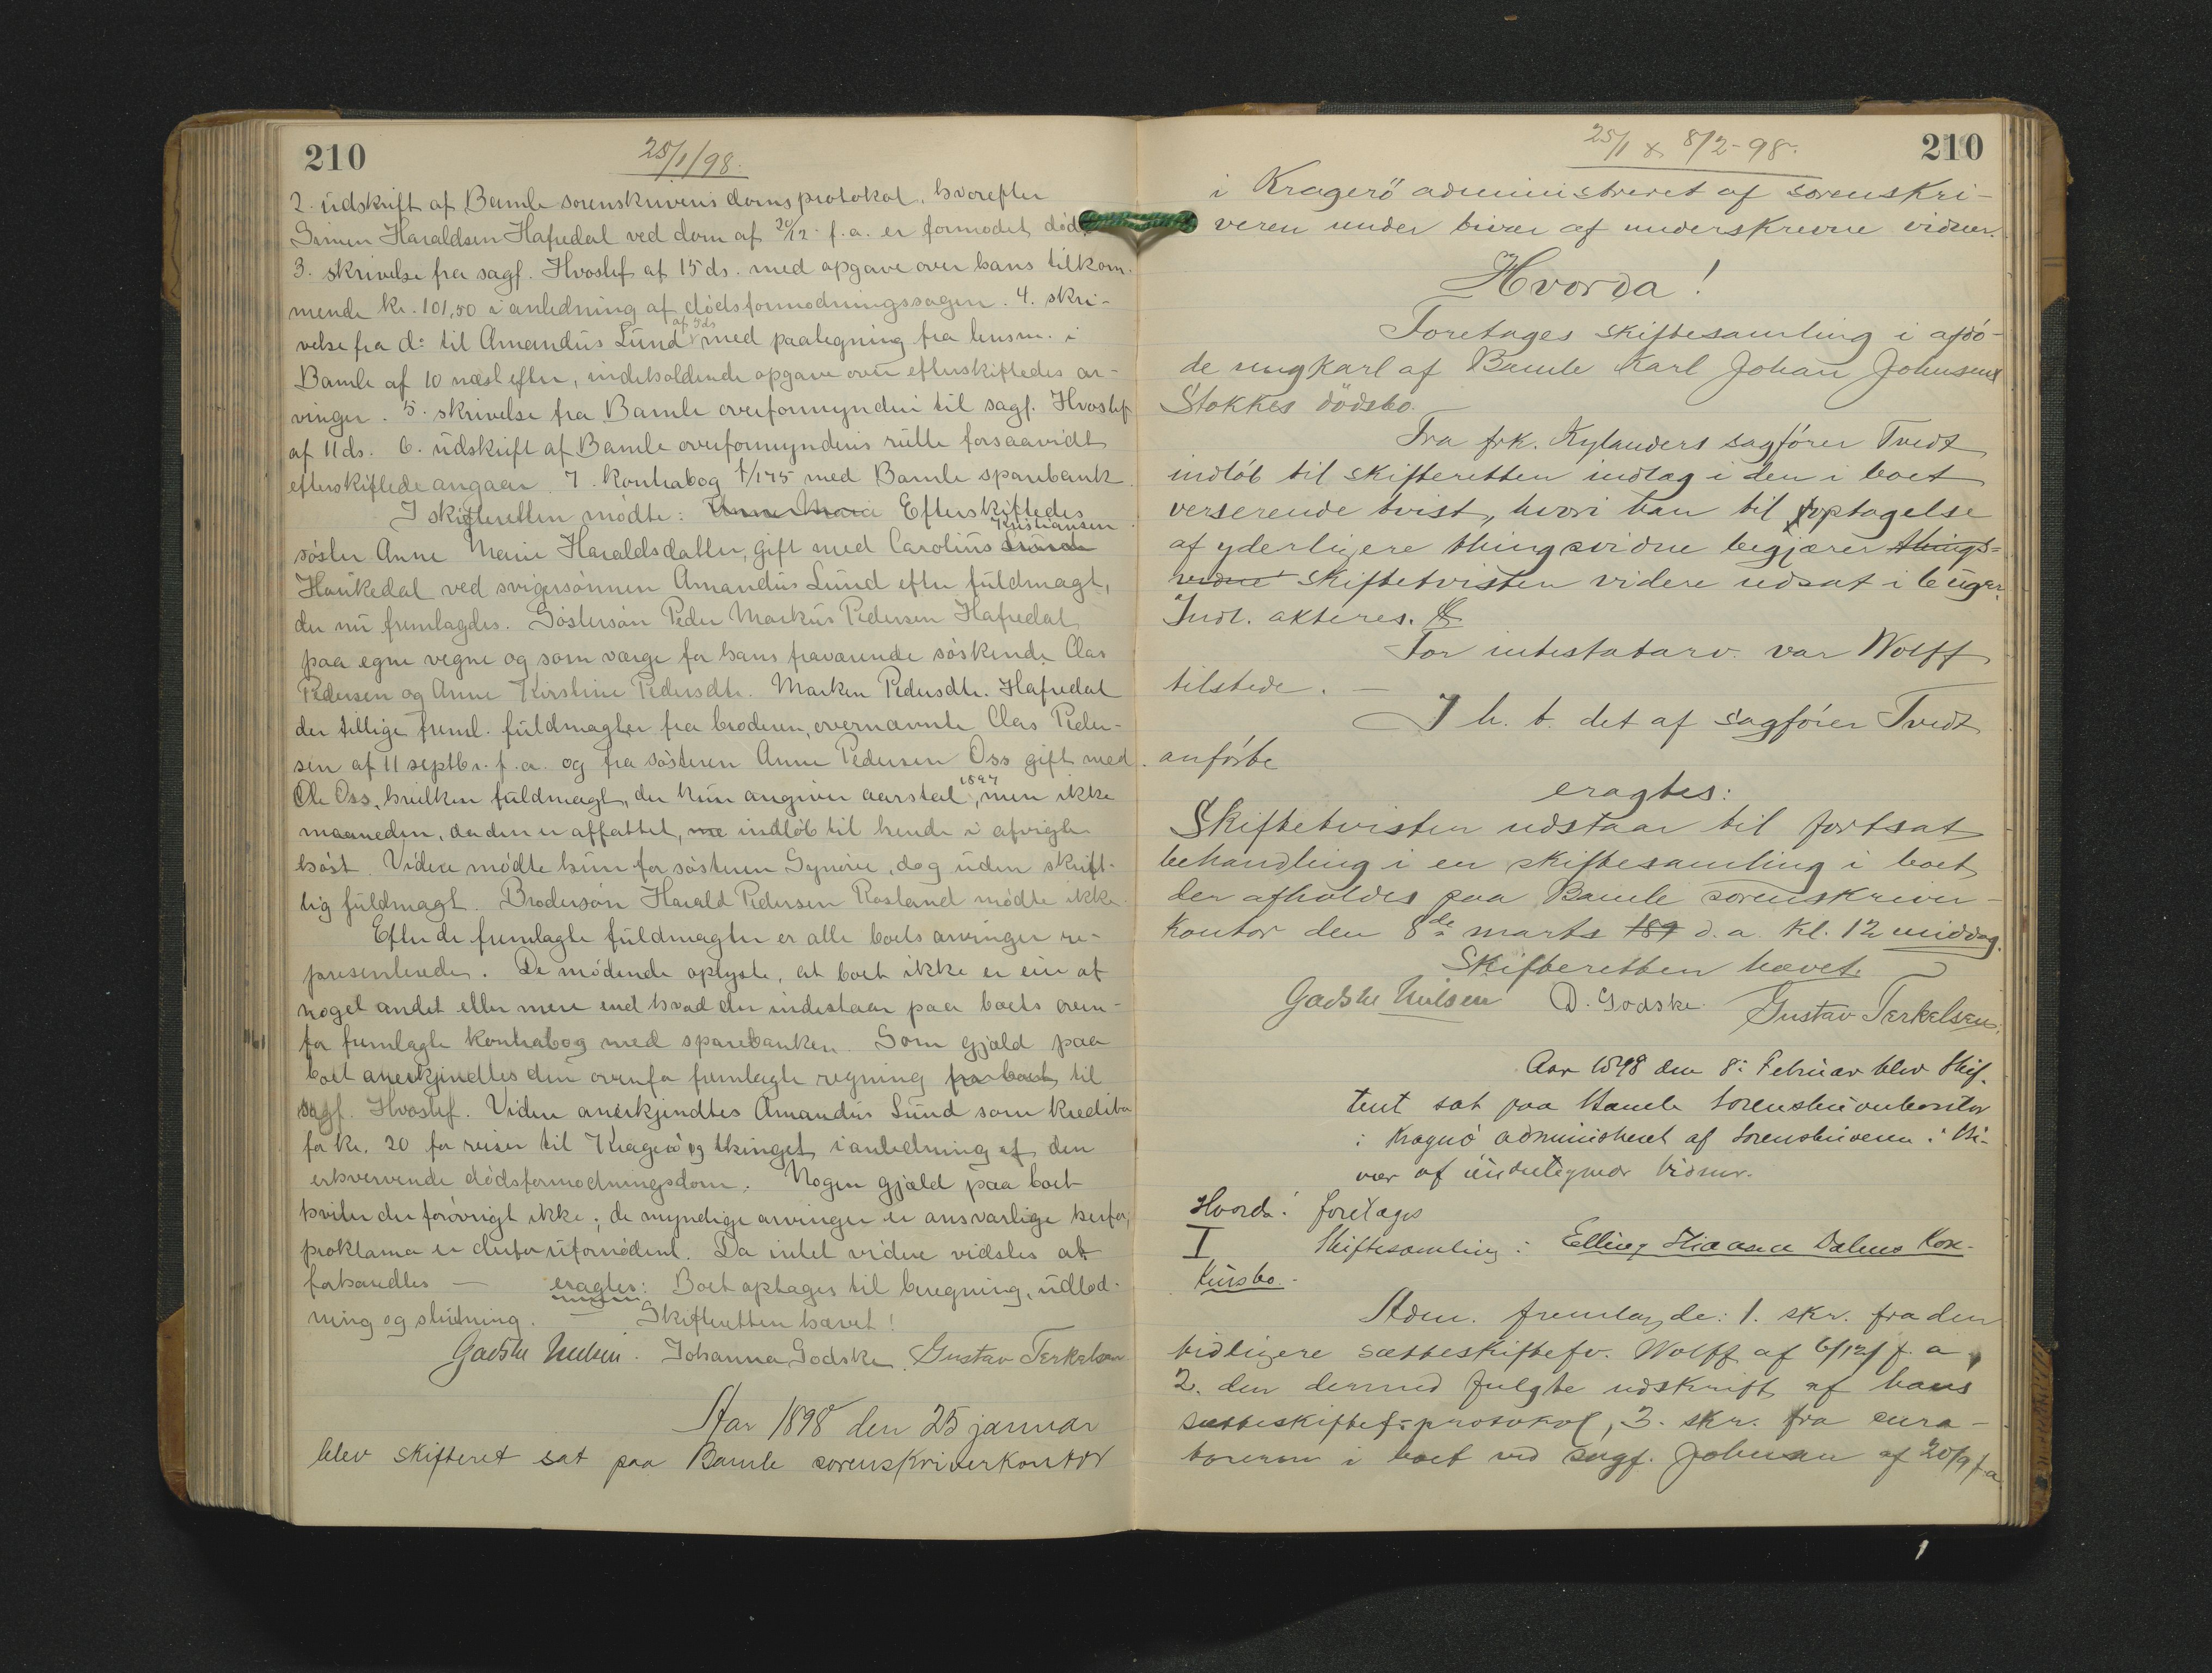 210
25/1/98.
2. udskrift af Bamle sorenskriveris doms protokol, hvorefter
Simen Haraldsen Hafredal ved dom af 20/12 f.a. er formodet død.
3. skrivelse fra sagf. Hvoslef af 15 ds. med opgave over hans tilkom-
mende kr. 101,50 i anledning af dødsformodningssagen. 4. skri-
velse fra do til Amandus Lund af 5 ds med paategning fra lensm. i
Bamle af 10 næstefter, indeholdende opgave over efterskiftedes ar-
vinger. 5. skrivelse fra Bamle overformynderi til sagf. Hvoslef
af 11 ds. 6. udskrift af Bamle overformynderis rulle forsaavidt
efterskiftede angaar. 7. Kontrabog 1/175 med Bamle sparebank.
I skifteretten mødte: Anne Marie Efterskiftedes
søster Anne Marie Haraldsdatter, gift med Carolius Kristiansen
Haukedal ved svigersønnen Amandus Lund efter fuldmagt,
der nu fremlagdes. Søstersøn Peder Markus Pedersen Hafredal
paa egne vegne og som værge for hans fraværende søskende Clas
Pedersen og Anne Kirstine Pedersdtr. Marken Pedersdtr. Hafredal
der tillige freml. fuldmagter fra broderen, overnævnte Clas Peder-
sen af 11 septbr. f.a. og fra søsteren Anne Pedersen Oss gift med
Ole Oss, hvilken fuldmagt, der kun angiver aarstal 1897, men ikke
maaneden, da den er affattet, indløb til hende i afvigte
høst. Videre mødte hun for søsteren Synøve, dog uden skrift-
lig fuldmagt. Brodersøn Harald Pedersen Rosland mødte ikke.
Efter de fremlagte fuldmagter er alle boets arvinger re-
præsenterede. De mødende oplyste, at boet ikke er eier af
noget andet eller mere end hvad der indestaar paa boets oven-
for fremlagte kontrabog med sparebanken. Som gjæld paa
boet anerkjendtes den ovenfor fremlagte regning fra boet til
sagf. Hvoslef. Videre anerkjendtes Amandus Lund som kreditor
for kr. 20 for reiser til Kragerø og thinget i anledning af den
erhvervende dødsformodningsdom. Nogen gjæld paa boet
hviler der forøvrigt ikke; de myndige arvinger er ansvarlige herfor,
proklama er derfor ufornødent. Da intet videre vidstes at
forhandles — eragtes: Boet optages til beregning, udlod-
ning og slutning. — Skifteretten hævet!
Gadske Nielsen. Johanna Godske. Gustav Terkelsen
Aar 1898 den 25 januar
blev skifteret sat paa Bamle sorenskriverkontor
25/1 & 8/2-98.
210
i Kragerö administreret af sorenskri-
veren under bivær af underskrevne vidner.
Hvorda!
Foretages skiftesamling i afdö-
de ungkarl af Bamle Karl Johan Johnsen
Stokkes dödsbo.
Fra frk. Kylanders sagfører Tvedt
indløb til skifteretten indlæg i den i boet
verserende tvist, hvori han til optagelse
af yderligere thingsvidne begjærer things-
vidne skiftetvisten videre udsat i 6 uger.
Indl. akteres.
For intestatarv. var Wolff
tilstede. —
I h. t. det af sagfører Tvedt
anførte
eragtes:
Skiftetvisten udstaar til fortsat
behandling i en skiftesamling i boet
der afholdes paa Bamle sorenskriver-
kontor den 8de marts 189 d.a. kl. 12 middag.
Skifteretten hævet.
Gadske Nielsen D. Godske. Gustav Terkelsen.
Aar 1898 den 8: Februar blev Skif-
teret sat paa Bamle Sorenskriverkontor
i Kragerø administreret af Sorenskriveren i Bi-
vær af undertegnede Vidner.
Hvorda: foretages
I Skiftesamling i Elling Dalens Kon-
kursbo.
Adm. fremlagde: 1. skr. fra den
tidligere sætteskiftefv. Wolff af 6/12 f.a.,
2. den dermed fulgte udskrift af hans
sætteskiftef.protokol, 3. skr. fra cura-
torerne i boet ved sagf. Johnsen af 20/9 f.a.